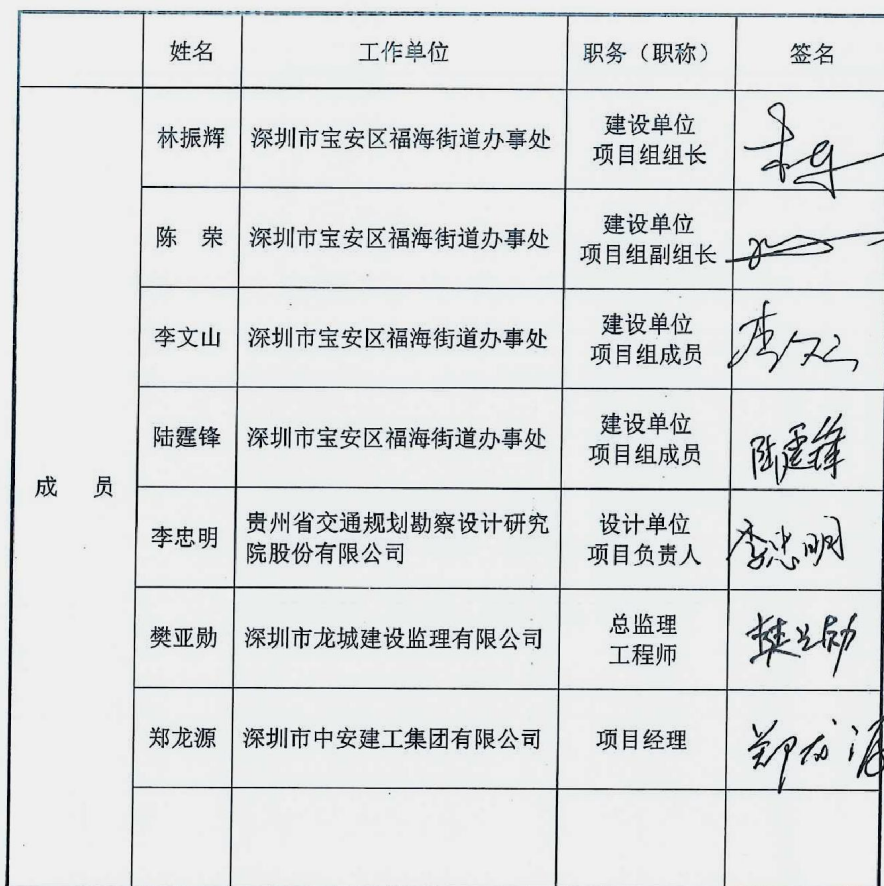 姓名 工作单位 职务（职称） 签名
成 员
林振辉 深圳市宝安区福海街道办事处 建设单位
项目组组长
陈 荣 深圳市宝安区福海街道办事处 建设单位
项目组副组长
李文山 深圳市宝安区福海街道办事处 建设单位
项目组成员
陆霆锋 深圳市宝安区福海街道办事处 建设单位
项目组成员 陆霆锋
李忠明 贵州省交通规划勘察设计研究
院股份有限公司 设计单位
项目负责人 李忠明
樊亚勋 深圳市龙城建设监理有限公司 总监理
工程师 樊亚勋
郑龙源 深圳市中安建工集团有限公司 项目经理 郑龙源